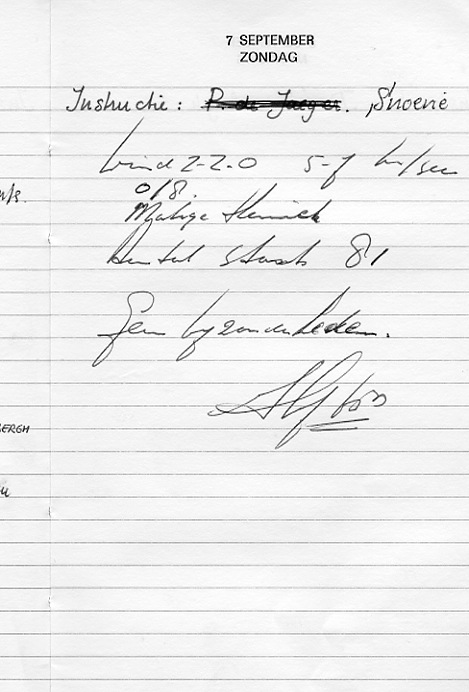 7 SEPTEMBER
ZONDAG
Instructie: P. de Jaeger. Snoerie
Wind 2-2-0 5-7 m/sec
0/8.
Matige thermiek
Aantal starts 81
Geen byzonderheden.
BERGH